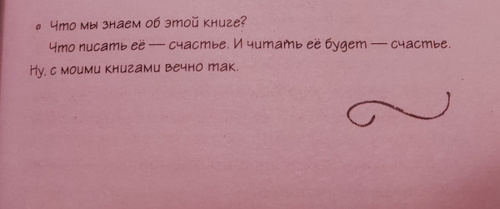 • Что мы знаем об этой книге?
Что писать её — счастье. И читать её будет — счастье.
Ну, с моими книгами вечно так.